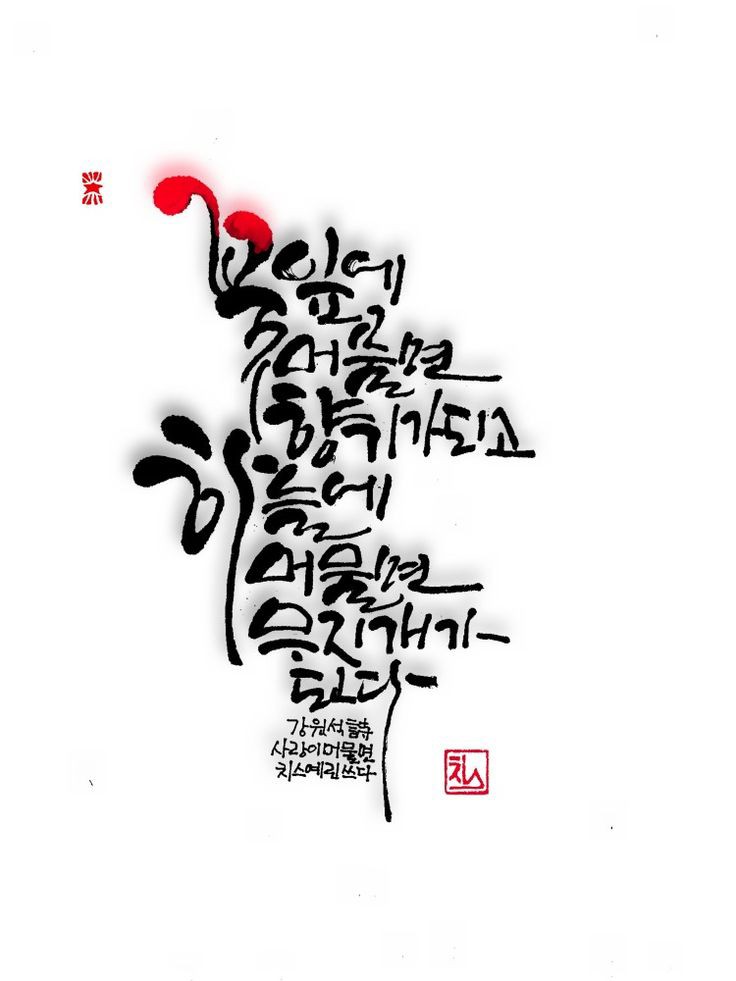 꽃잎에
머물면
향기가되고
하늘에
머물면
무지개가
된다
강원석 詩
사랑이머물면
치스예림쓰다